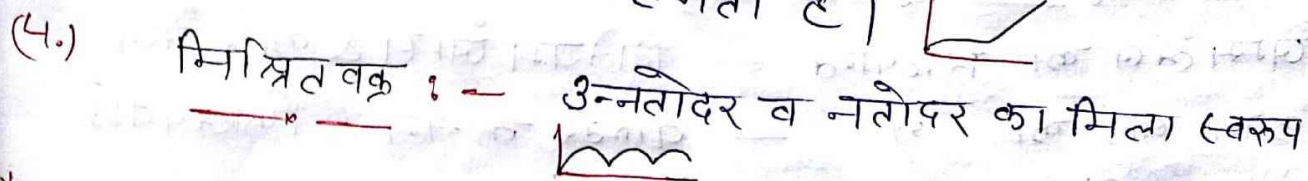 है।
(4.) मिश्रित वक्र :- उन्नतोदर व नतोदर का मिला स्वरूप